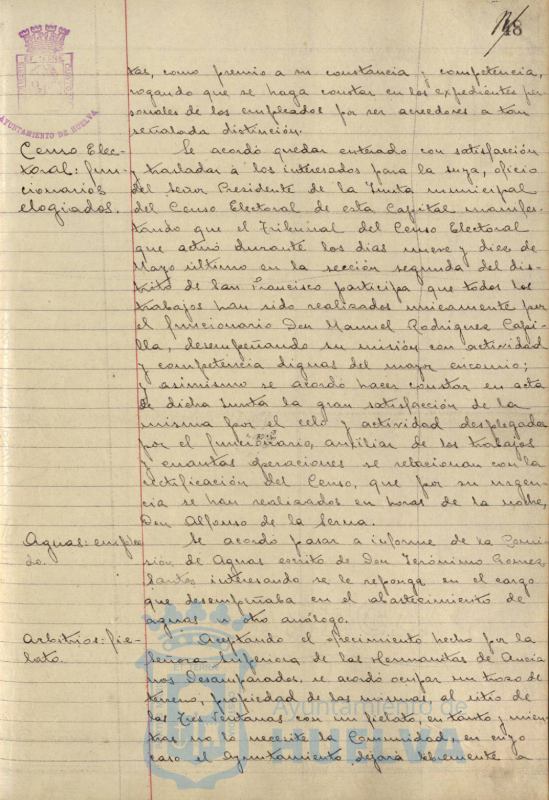 48
AYUNTAMIENTO DE HUELVA
tas, como premio a su constancia y competencia,
rogando que se haga constar en los expedientes per-
sonales de los empleados por ser acreedores a tan
señalada distinción.
Censo Elec-
toral: fun-
cionarios
elogiados.
Se acordó quedar enterado con satisfacción
y trasladar á los interesados para la suya, oficio
del Señor Presidente de la Junta municipal
del Censo Electoral de esta Capital manifes-
tando que el Tribunal del Censo Electoral
que actuó durante los dias nueve y diez de
Mayo último en la sección segunda del dis-
trito de San Francisco participa que todos los
trabajos han sido realizados unicamente por
el funcionario Don Manuel Rodriguez Capi-
lla, desempeñando su misión con actividad
y competencia dignas del mayor encomio;
y asimismo se acordó hacer constar en acta
de dicha Junta la gran satisfacción de la
misma por el celo y actividad desplegada
por el funcionario, auxiliar de los trabajos
y cuantas operaciones se relacionan con la
rectificación del Censo, que por su urgen-
cia se han realizados en horas de la noche,
Don Alfonso de la Serna.
Aguas: emplea-
do.
Se acordó pasar a informe de la Comi-
sión de Aguas escrito de Don Jerónimo Gomez
Santos interesando se le reponga en el cargo
que desempeñaba en el abastecimiento de
aguas u otro análogo.
Arbitrios: fie-
lato.
Aceptando el ofrecimiento hecho por la
Señora Superiora de las Hermanitas de Ancia-
nos Desamparados, se acordó ocupar un trozo de
terreno, propiedad de las mismas, al sitio de
las Tres Ventanas con un fielato, en tanto y mien-
tras no lo necesite la Comunidad, en cuyo
caso el Ayuntamiento dejará libremente a
Ayuntamiento de
HUELVA